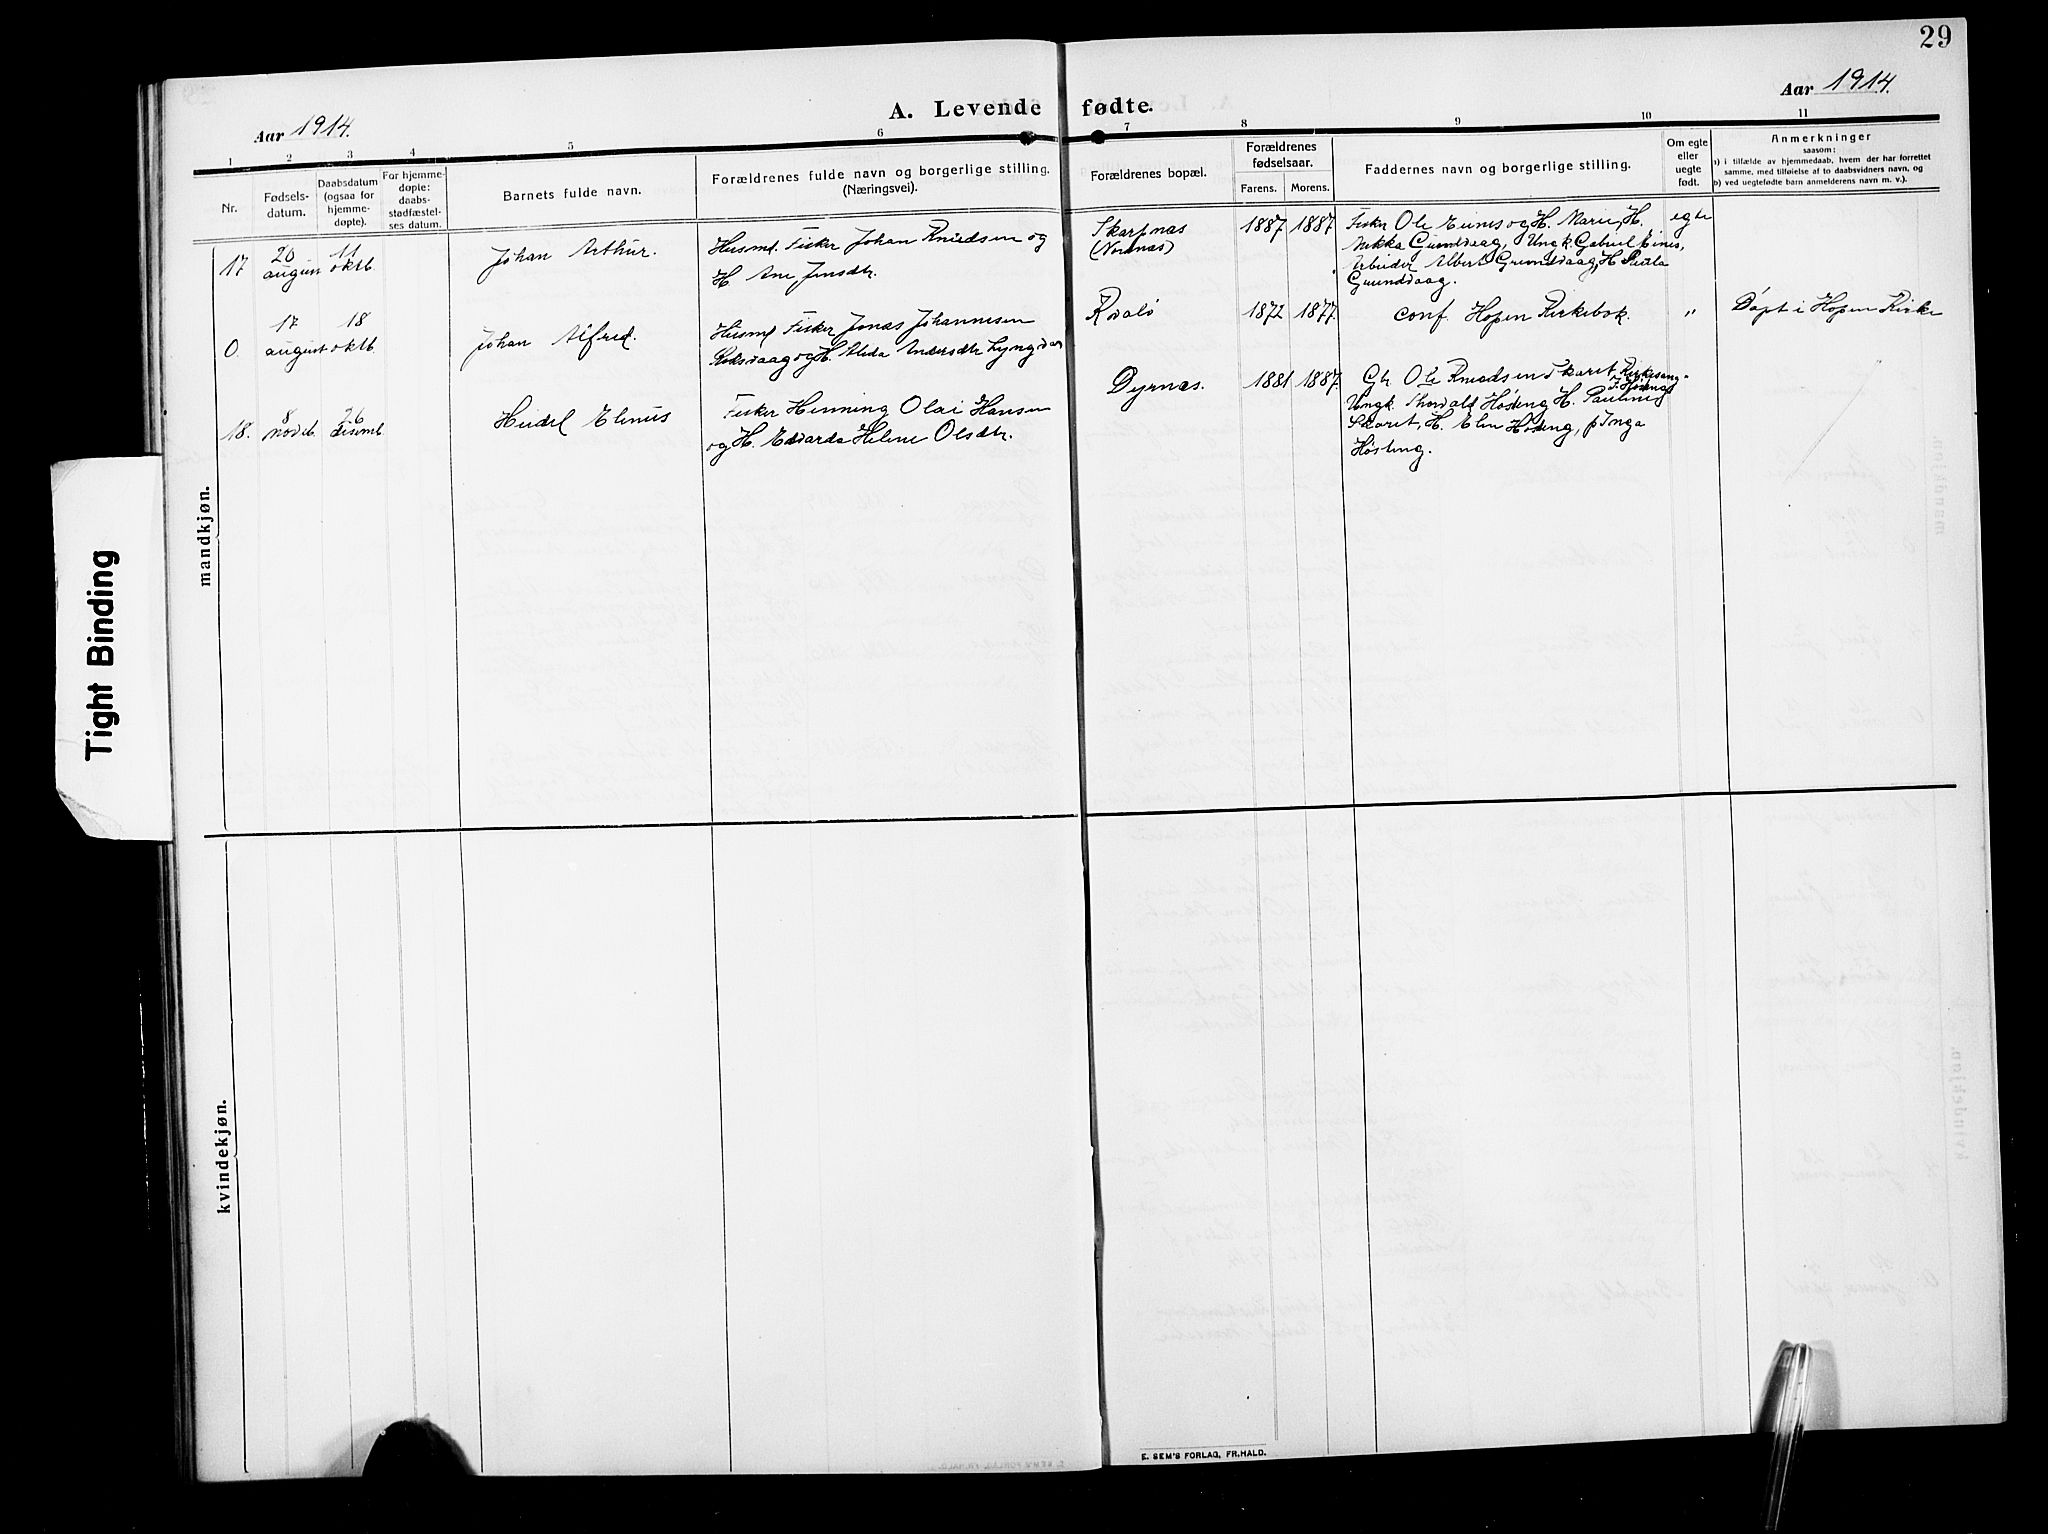 29
Aar 1914.
A. Levende fødte.
Aar 1914.
1 2 3 4 5 6 7 8 9 10 11
Nr.
Fødsels-
datum.
Daabsdatum
(ogsaa for
hjemme-
døpte).
For hjemme-
døpte:
daabs-
stadfæstel-
ses datum.
Barnets fulde navn.
Forældrenes fulde navn og borgerlige stilling.
(Næringsvei).
Forældrenes bopæl.
Forældrenes
fødselsaar.
Farens. Morens.
Faddernes navn og borgerlige stilling.
Om egte
eller
uegte
født.
Anmerkninger
saasom:
a) i tilfælde av hjemmedaab, hvem der har forrettet
samme, med tilføielse af to daabsvidners navn, og
b) ved uegtefødte barn anmelderens navn m. v.).
mandkjøn.
17
20 august
11 oktb.
Johan Arthur.
Husmd. Fisker Johan Knudsen og
H. Ane Jensdtr.
Skarpnas
(Nordnas)
1887 1887
Fisker Ole Einis og H. Marie, H.
Nekka Grunddaag, Ungk. Gabriel Einis,
Arbeider Albert Grunddaag, H.
Grunddaag.
egte
0.
17 august
18 oktb.
Johan Alfred.
Husmd Fisker Jonas Johannesen
og H. Alida Andersdtr
1872 1877.
conf. Hopen Kirkebok.
"
Døpt i Hopen Kirke
18.
8 novb.
26 desemb.
Heidel Elenus
Fisker Henning Olai Hansen
og H. Edvarda Helene Olsdtr.
Dyrnas.
1881 1887
Gbr. Ole Knudsen Skaret, Kirkesang.
Ungk. Thorvald Høsteng, H. Pauline
Skaret, H. Elen Høsteng, p Inga
Høsteng.
kvindekjøn.
E. SEM'S FORLAG, FR.HALD.
Tight Binding